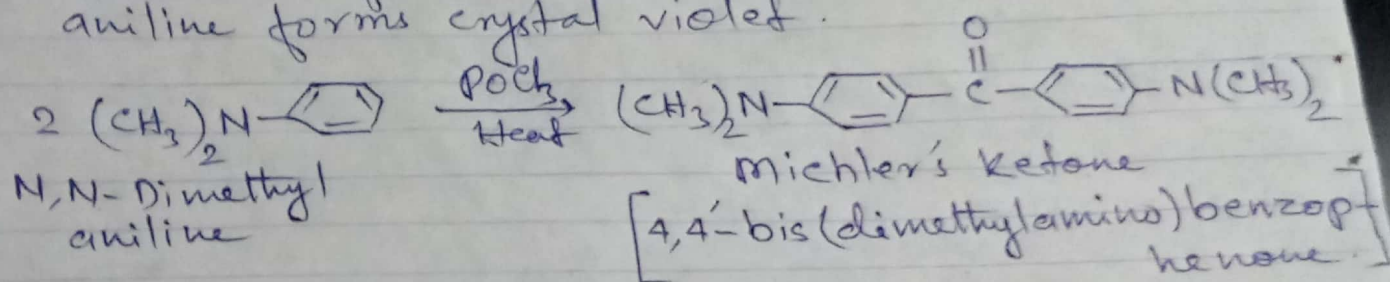 aniline forms crystal violet.
2 (CH₃)₂N- POCl₃ Heat (CH₃)₂N- O || C -N(CH₃)₂
N,N-Dimethyl aniline
Michler's ketone
[4,4'-bis(dimethylamino)benzop-
henone.]